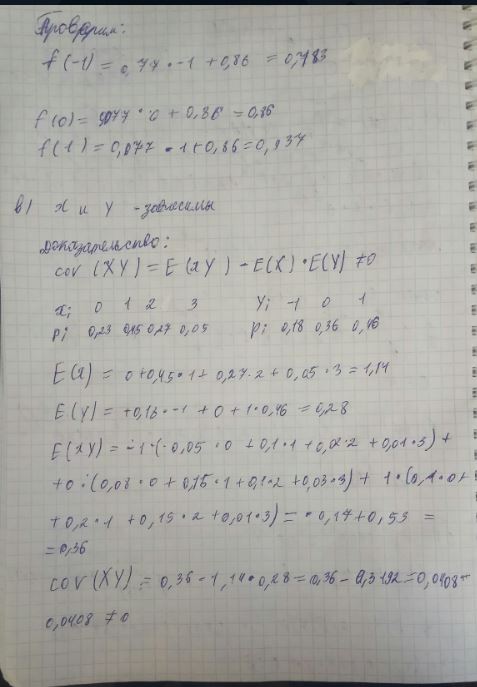 Проверим:
f(-1) = 0,77 · -1 + 0,86 = 0,783
f(0) = 0,077 · 0 + 0,86 = 0,86
f(1) = 0,077 · 1 + 0,86 = 0,937
в) X и Y - зависимы
Доказательство:
cov (XY) = E (XY) - E(X) · E(Y) ≠ 0
xᵢ 0 1 2 3 Yᵢ -1 0 1
Pᵢ 0,23 0,45 0,27 0,05 Pᵢ 0,18 0,36 0,46
E(x) = 0 + 0,45 · 1 + 0,27 · 2 + 0,05 · 3 = 1,14
E(y) = +0,18 · -1 + 0 + 1 · 0,46 = 0,28
E(xY) = -1 · (-0,05 · 0 + 0,1 · 1 + 0,02 · 2 + 0,01 · 3) +
+0 · (0,08 · 0 + 0,15 · 1 + 0,1 · 2 + 0,03 · 3) + 1 · (0,1 · 0 +
+ 0,2 · 1 + 0,15 · 2 + 0,01 · 3) = - 0,17 + 0,53 =
= 0,36
cov(XY) = 0,36 - 1,14 · 0,28 = 0,36 - 0,3192 = 0,0408
0,0408 ≠ 0